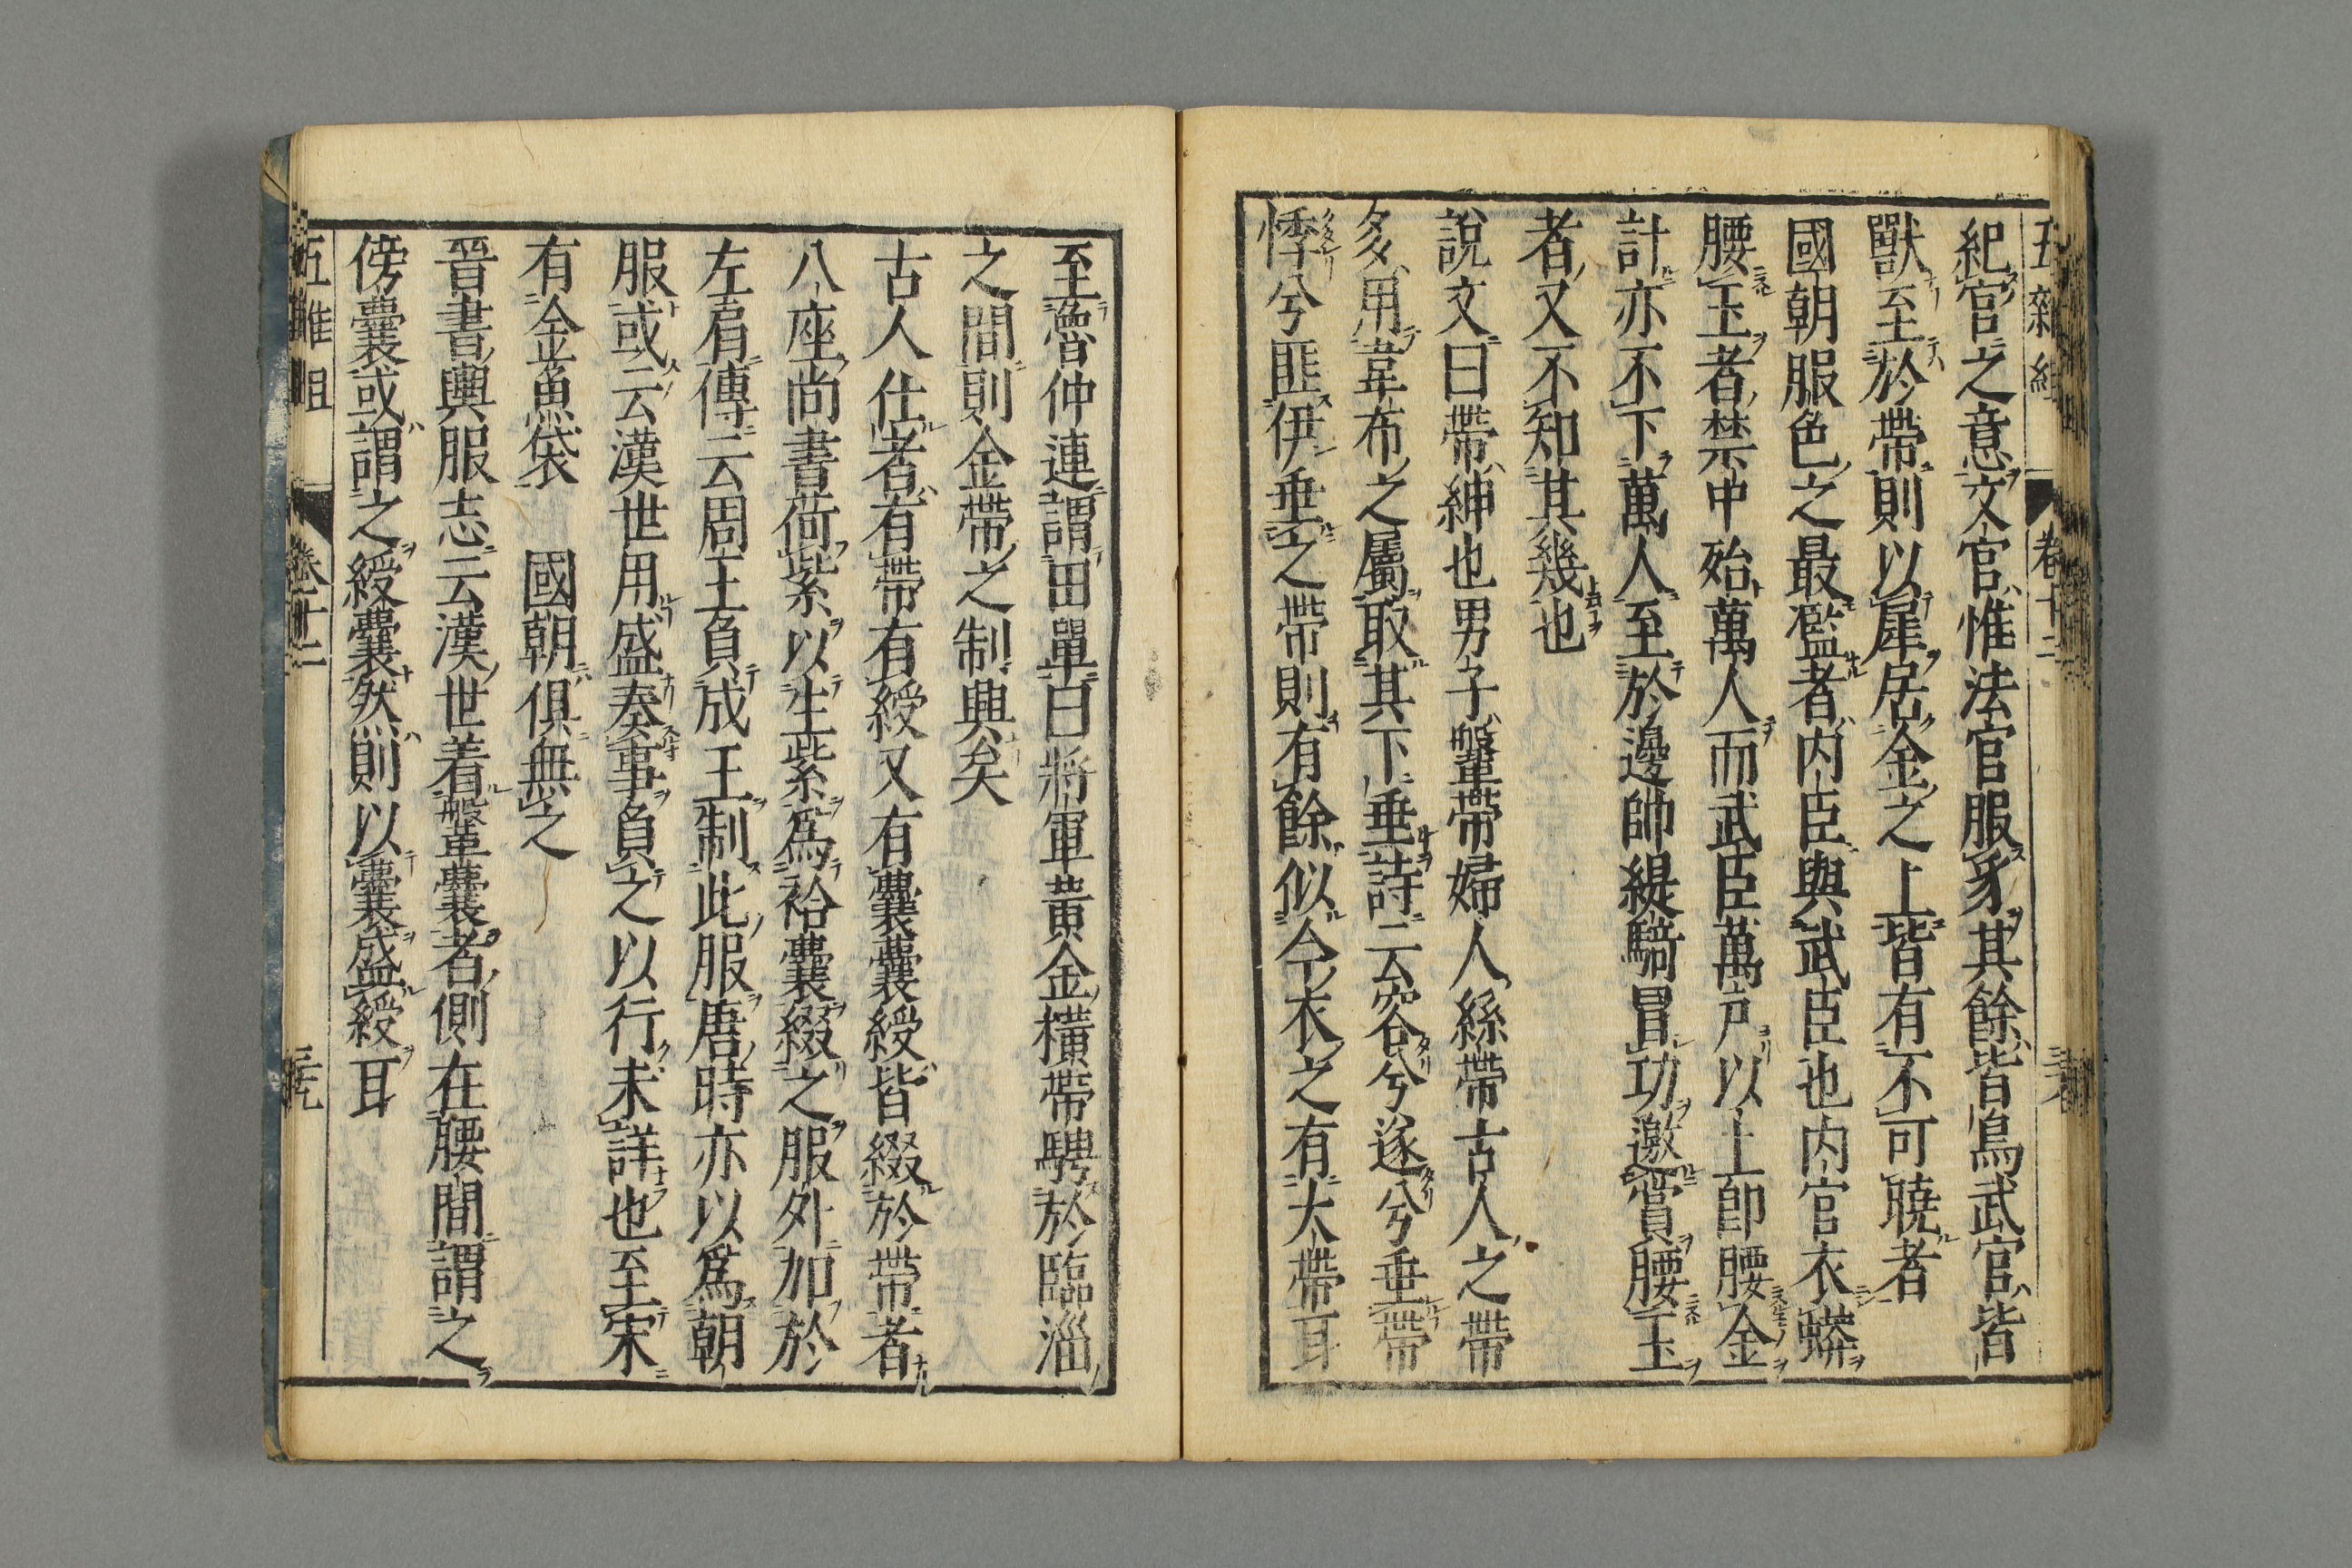 紀官之意文官惟法官服豸其餘皆鳥武官皆
獸至於帶則以犀居金之上皆有不可曉者
國朝服色之最濫者内臣與武臣也内官衣蟒
腰玉者禁中殆萬人而武臣萬戸以上即腰金
計亦不下萬人至於邊帥緹騎冒功邀賞腰玉
者又不知其幾也
說文曰帶紳也男子鞶帶婦人絲帶古人之帶
多用韋布之屬取其下垂詩云容兮遂兮垂帶
悸兮匪伊垂之帶則有餘似今衣之有大帶耳
至魯仲連謂田單曰將軍黄金橫帶騁於臨淄
之間則金帶之制興矣
古人仕者有帶有綬又有囊囊綬皆綴於帶者
八座尚書荷紫以生紫爲袷囊綴之服外加於
左肩傳云周王負成王制此服唐時亦以爲朝
服或云漢世用盛奏事負之以行未詳也至宋
有金魚袋 國朝俱無之
晉書輿服志云漢世着鞶囊者側在腰間謂之
傍囊或謂之綬囊然則以囊盛綬耳
五雜組
卷十二